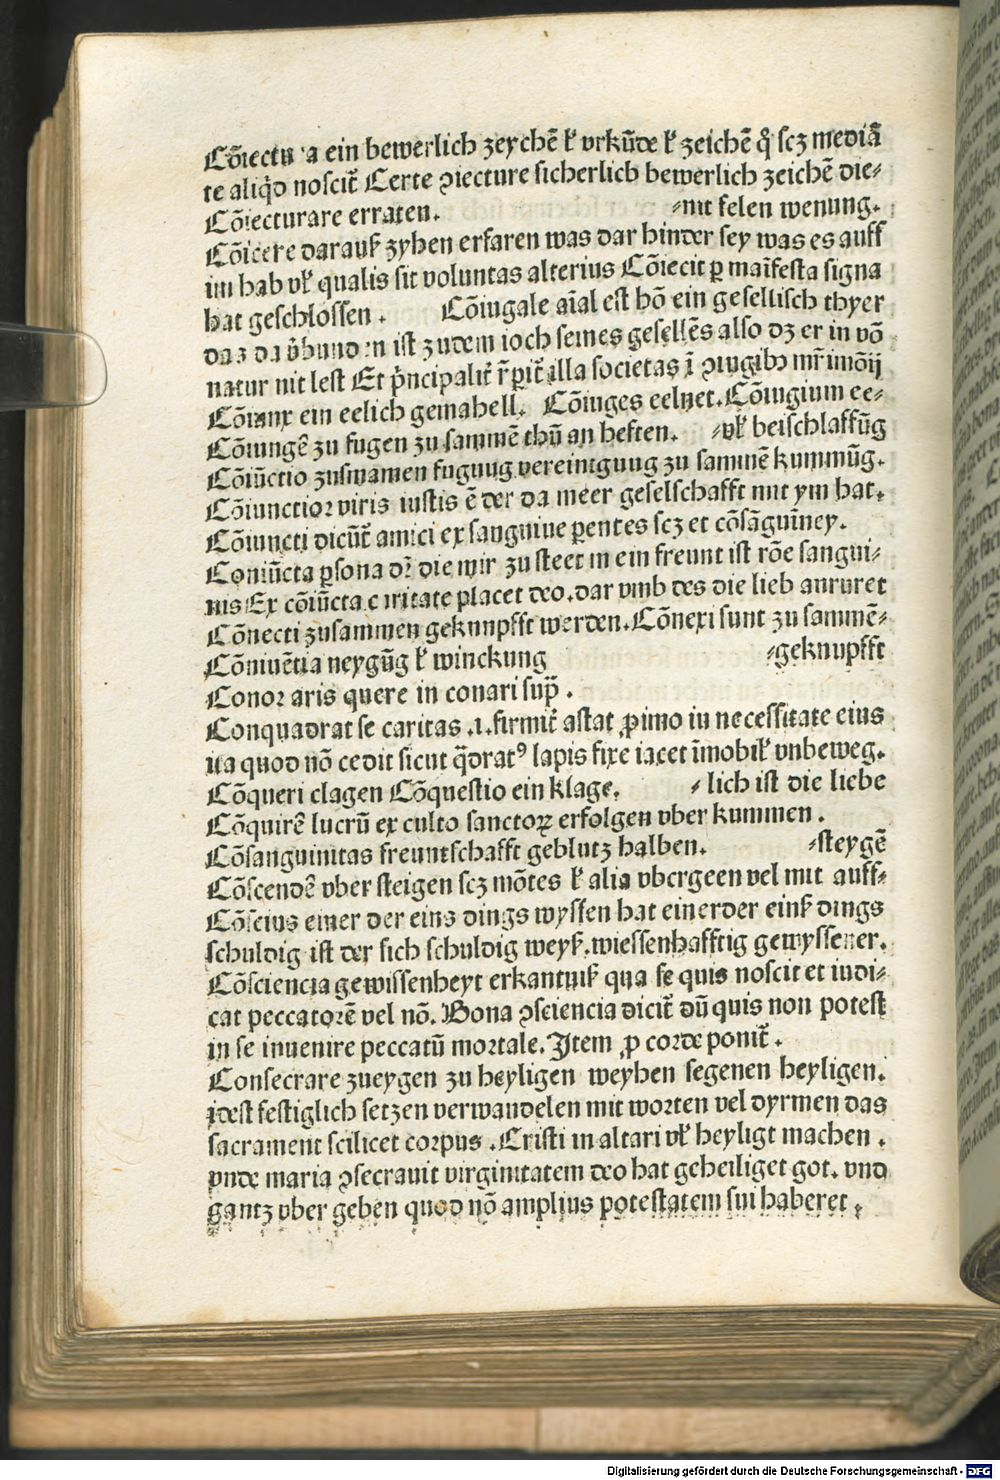 Cōiectura ein bewerlich zeychē ł vrkūde ł zeichē ꝙ̊ scꝫ mediā
te aliqͥd noscit̄ Certe ꝯiecture sicherlich bewerlich zeichē die⸗
Cōiecturare erraten. ⸗nit felen wenung.
Cōicere darauß zyhen erfaren was dar hinder sey was es auff
im hab vł qualis sit voluntas alterius Cōiecit ꝑ maīfesta signa
hat geschlossen . Cōiugale aīal est hō ein gesellisch thyer
daz da v̓bunden ist zudem ioch seines gesellēs also dz er in vō
natur nit lest Et p̄ncipalit̄ r̄ꝑit̄ illa societas ī ꝯiugibꝫ mr̄imōij
Cōiunx ein eelich gemahell. Cōiuges eelyet. Cōiugium ee⸗
Cōiungē zu fugen zu sammē thū an heften. ⸗vł beischlaffūg
Cōiūctio zusmamen fugung vereinigung zu sammē kummūg.
Cōiunctioꝛ viris iustis ē der da meer geselschafft mit ym hat.
Cōiuncti dicūt̄ amici ex sanguine ꝑentes scꝫ et cōsāguīney.
Coniūcta ꝑsona dꝛ̄ die mir zu steet in ein freunt ist rōe sangui⸗
nis Ex cōiūcta caritate placet deo. dar vmb des die lieb anruret
Cōnecti zusammen geknupfft werden. Cōnexi sunt zu sammē⸗
Cōniuētia neygūg ł winckung ⸗geknupfft
Conoꝛ aris quere in conari sup̄ .
Conquadrat se caritas .i. firmit̄ astat ꝓimo in necessitate eius
ita quod nō cedit sicut q̄dratꝰ lapis fixe iacet īmobił vnbeweg.
Cōqueri clagen Cōquestio ein klage. ⸗ lich ist die liebe
Cōquirē lucrū ex culto sanctoꝝ erfolgen vber kummen .
Cōsanguinitas freuntschafft geblutz halben. ⸗steygē
Cōscendē vber steigen scꝫ mōtes ł alia vbergeen vel mit auff⸗
Cōscius einer der eins dings wyssen hat einerder einß dings
schuldig ist der sich schuldig weyß. wiessenhafftig gewyssener.
Cōsciencia gewissenheyt erkantniß qua se quis noscit et iudi⸗
cat peccatorē vel nō. Bona ꝯsciencia dicit̄ dū quis non potest
in se inuenire peccatū mortale. Item ꝓ corde ponit̄ .
Consecrare zueygen zu heyligen weyhen segenen heyligen.
idest festiglich setzen verwandelen mit worten vel dyrmen das
sacrament scilicet corpus . Cristi in altari vł heyligt machen .
vnde maria ꝯsecrauit virginitatem deo hat geheiliget got. vnd
gantz vber geben quod nō amplius potestatem sui haberet .
Digitalisierung gefördert durch die Deutsche Forschungsgemeinschaft - DFG